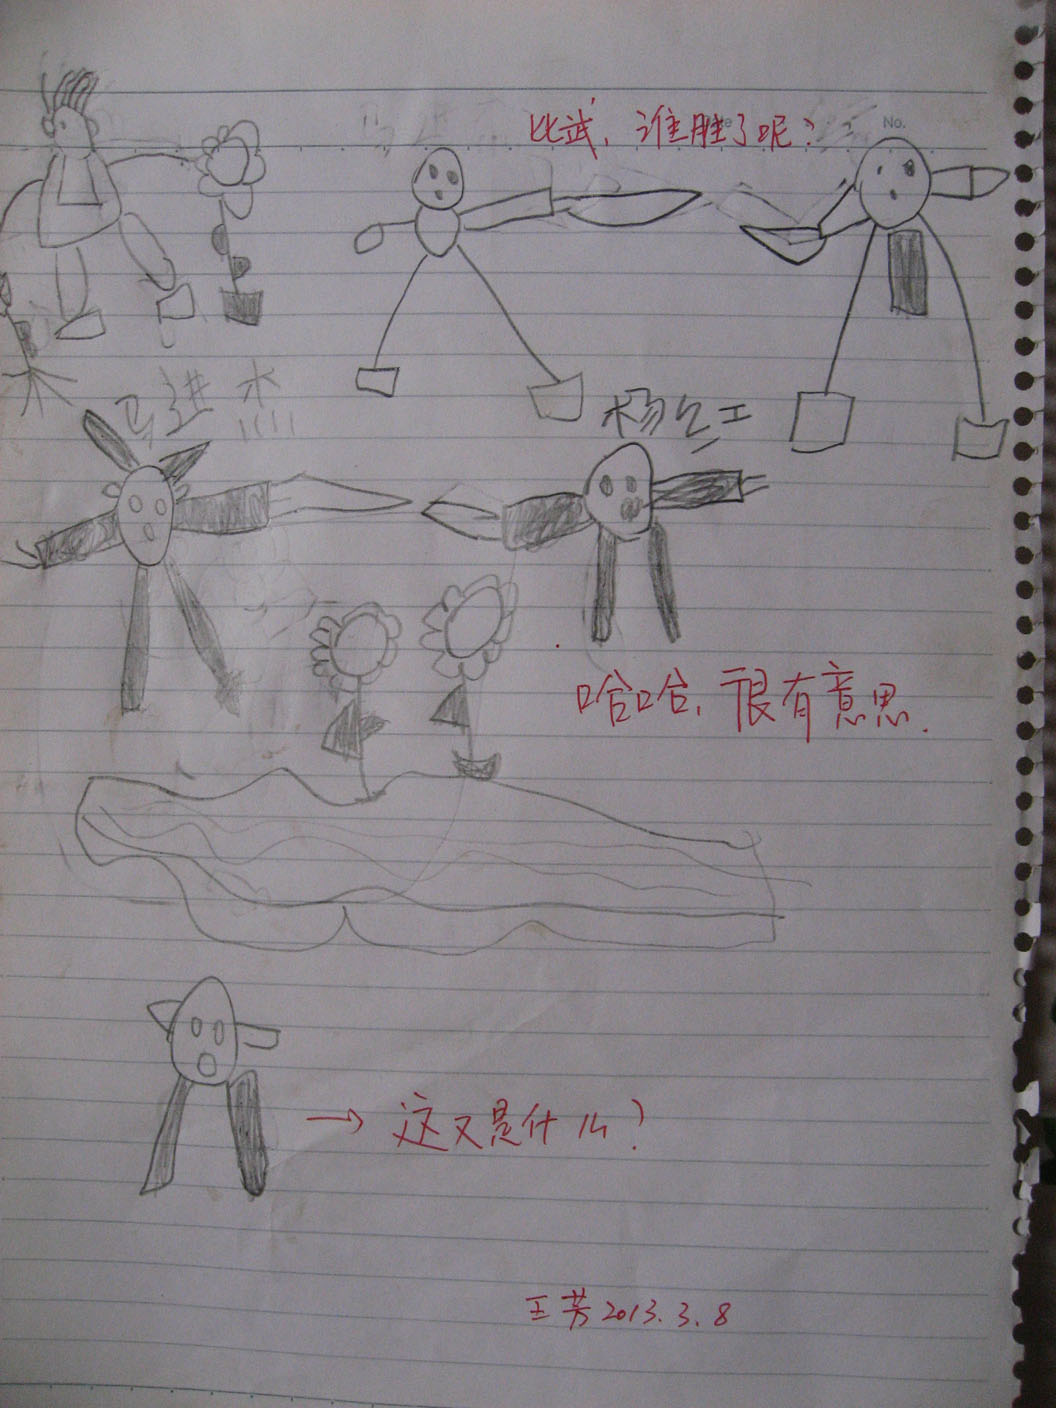 No.
比武，谁胜了呢？
马进杰
杨红工
哈哈，很有意思.
→ 这又是什么？
王芳 2013.3.8